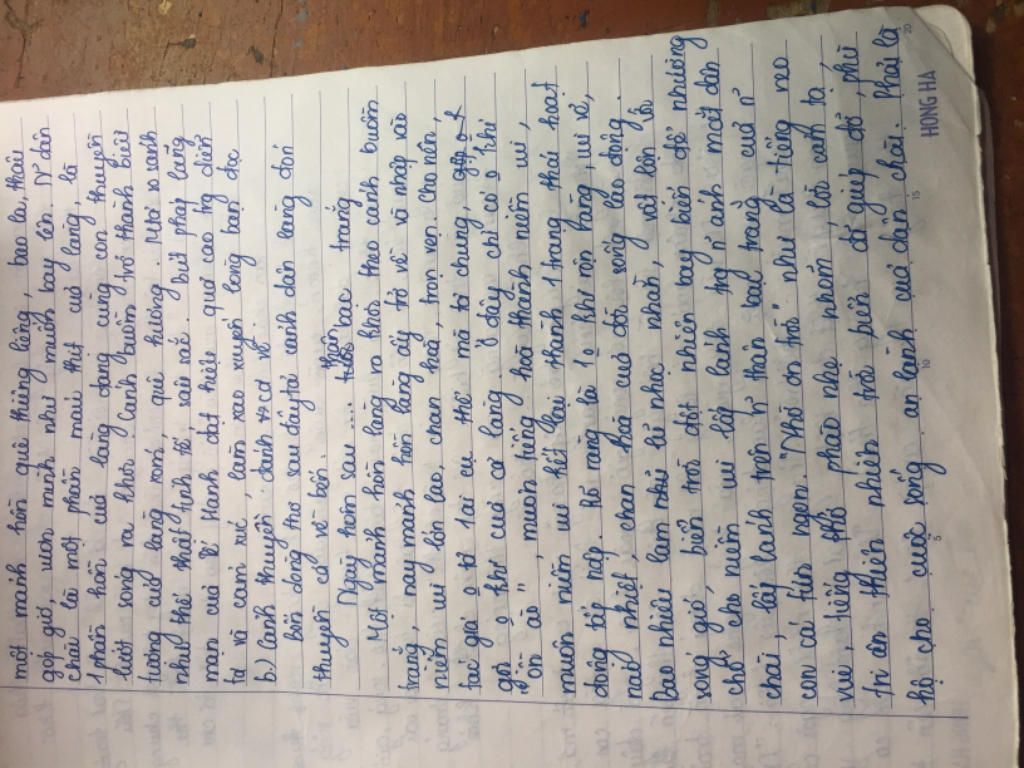 một mảnh hồn quê thiêng liêng, bao la, thâu
góp gió, vươn mình như muốn bay lên. Ng` dân
chài là một phần máu thịt của làng, là
1 phần hồn của làng đang cùng con thuyền
lướt sóng ra khơi. Cánh buồm trở thành biểu
tượng của làng xóm, quê hương. Nhờ so sánh
như thế thật tinh tế, sâu sắc. Bút pháp lãng
mạn của Tế Hanh đạt hiệu quả cao trg diễn
tả và cảm xúc, làm xao xuyến lòng bạn đọc
b) Cảnh thuyền đánh cá về.
bốn dòng thơ sau đây tả cảnh dân làng đón
thuyền cá về bến.
Ngày hôm sau ... thân bạc trắng
Một mảnh hồn làng ra khơi theo cánh buồm
trắng, nay mảnh hồn làng ấy trở về và nhập vào
niềm vui lớn lao, chan hoà, trọn vẹn. Cho nên,
tác giả o tả 1 ai cụ thể mà tả chung,
gợi o khí của cả làng. Ở đây chỉ có o khí
"ồn ào", muôn tiếng hoà thành niềm vui,
muôn niềm vui kết lại thành 1 trạng thái hoạt
động tấp nập. Rõ ràng là 1 o khí rộn ràng, vui vẻ,
náo nhiệt, chan hoà của đời sống lao động.
Bao nhiêu lam lũ nhọc nhằn, vật lộn vs
sóng gió, biển trời đột nhiên bay biến để nhường
chỗ cho niềm vui lấp lánh trg n~ ánh mắt dân
chài, lấp lánh trên n~ thân bạc trắng của n~
con cá tươi ngon. "Nhờ ơn trời" như là tiếng reo
vui, tiếng thở phào nhẹ nhõm, là lời cảm tạ,
tri ân thiên nhiên trời biển đã giúp đỡ, phù
hộ cho cuộc sống an lành của dân chài. Phải là
5 10 15 20
HONG HA